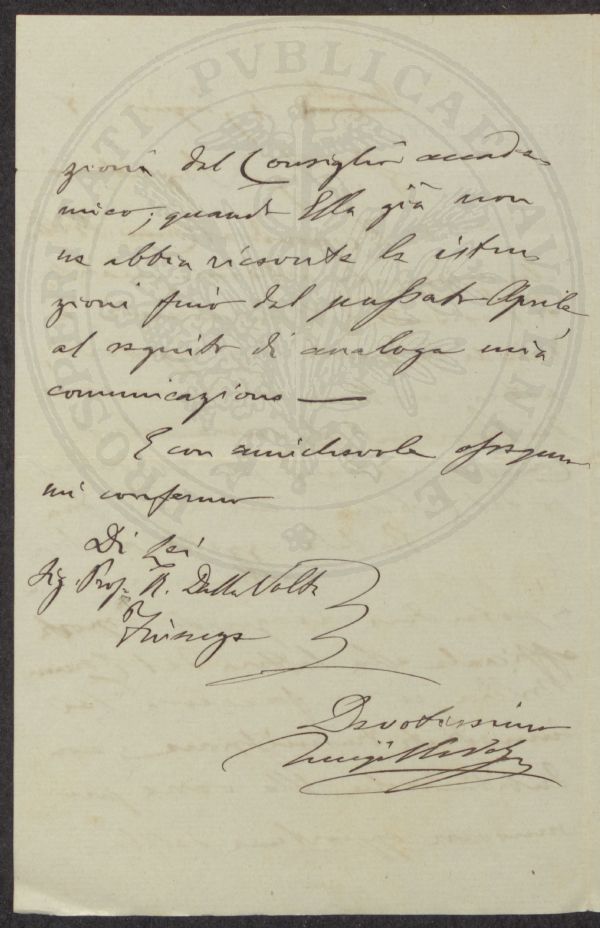 zioni del Consiglio accade
mico; quando Ella già non
ne abbia ricevute le istru
zioni fino dal passato Aprile
al seguito di analoga mia
comunicazione —
E con amichevole ossequio
mi confermo
Di Lei
Sig. Prof. R. Dalla Volta
Firenze
Devotissimo
Luigi
PROSPERITATI PVBLICAE AVGENDAE